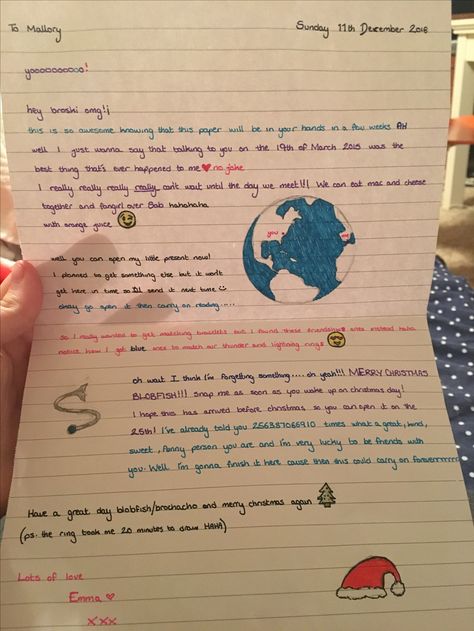 To Mallory
Sunday 11th December 2016
yoooooooooo!
hey broski omg!¡
this is so awesome knowing that this paper will be in your hands in a few weeks AH
well I just wanna say that talking to you on the 19th of March 2015 was the
best thing that's ever happened to me ♥ no joke
I really really really really can't wait until the day we meet!!! We can eat mac and cheese
together and fangirl over Sab hahahaha
with orange juice
you
me
well you can open my little present now!
I planned to get something else but it won't
get here in time so I'll send it next time
okay go open it then carry on reading.....
so I really wanted to get matching bracelets but I found these friendship ones instead haha
notice how I got blue ones to match our thunder and lightning rings
oh wait I think I'm forgetting something.... oh yeah!!! MERRY CHRISTMAS
BLOBFISH!!! Snap me as soon as you wake up on christmas day!
I hope this has arrived before christmas so you can open it on the
25th! I've already told you 256387066910 times what a great, kind,
sweet, funny person you are and I'm very lucky to be friends with
you. Well I'm gonna finish it here cause then this could carry on foreverrrrrr
Have a great day blobfish/brochacho and merry christmas again
(ps. the ring took me 20 minutes to draw HAHA)
Lots of love
Emma ♥
xxx